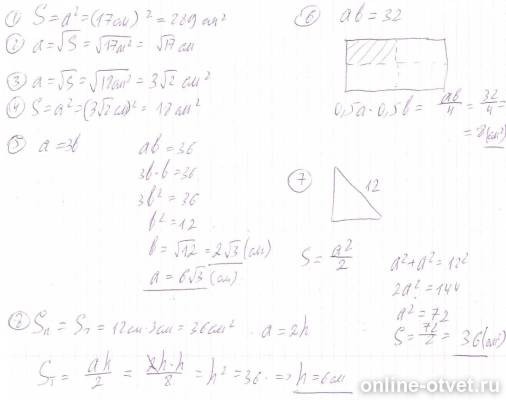 ① S=a²=(17см)²=289см²
② a=√S=√17м²=√17 см
③ a=√S=√18см²=3√2 см²
④ S=a²=(3√2см)²=18см²
⑤ a=3b
ab=36
3b·b=36
3b²=36
b²=12
b=√12=2√3(см)
a=6√3(см)
⑥ ab=32
0,5a·0,5b=ab/4=32/4=
=8(см²)
⑦
12
S=a²/2
a²+a²=12²
2a²=144
a²=72
S=72/2=36(см²)
Sп=Sт=12см·3см=36см² a=2h
Sт=ah/2=2h·h/2=h²=36 => h=6см
online-otvet.ru